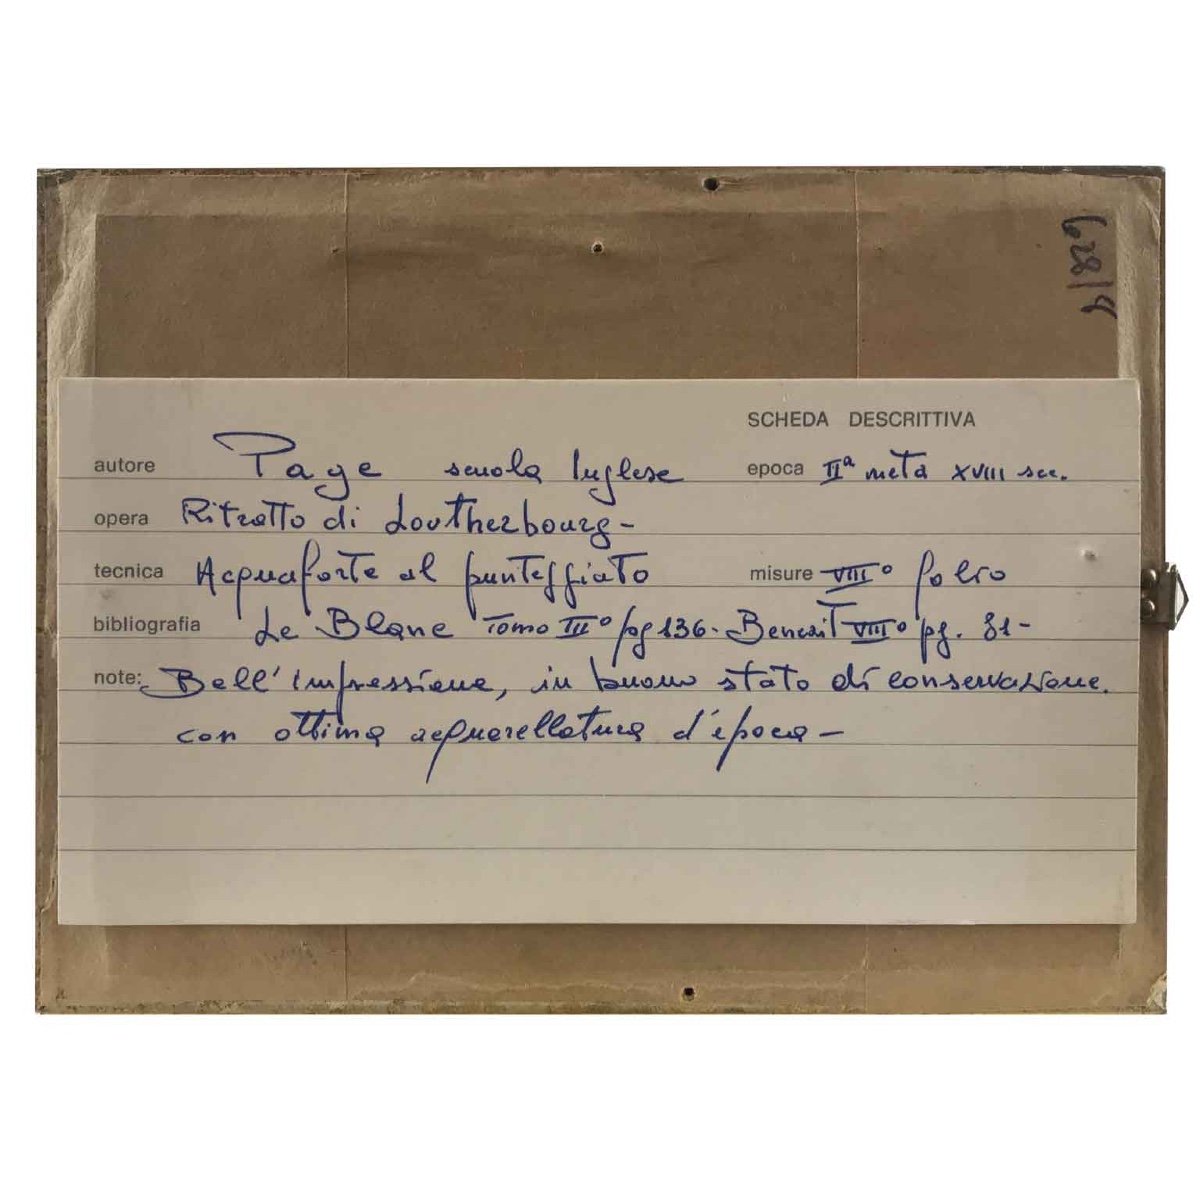 628/9
SCHEDA DESCRITTIVA
autore Page scuola Inglese epoca IIª metà XVIII sec.
opera Ritratto di Loutherbourg-
tecnica Acquaforte al punteggiato misure VIII° folio
bibliografia Le Blanc Tomo III° pg 136. Benezit VIII° pg. 81-
note: Bell'impressione, in buono stato di conservazione.
con ottima acquarellatura d'epoca-